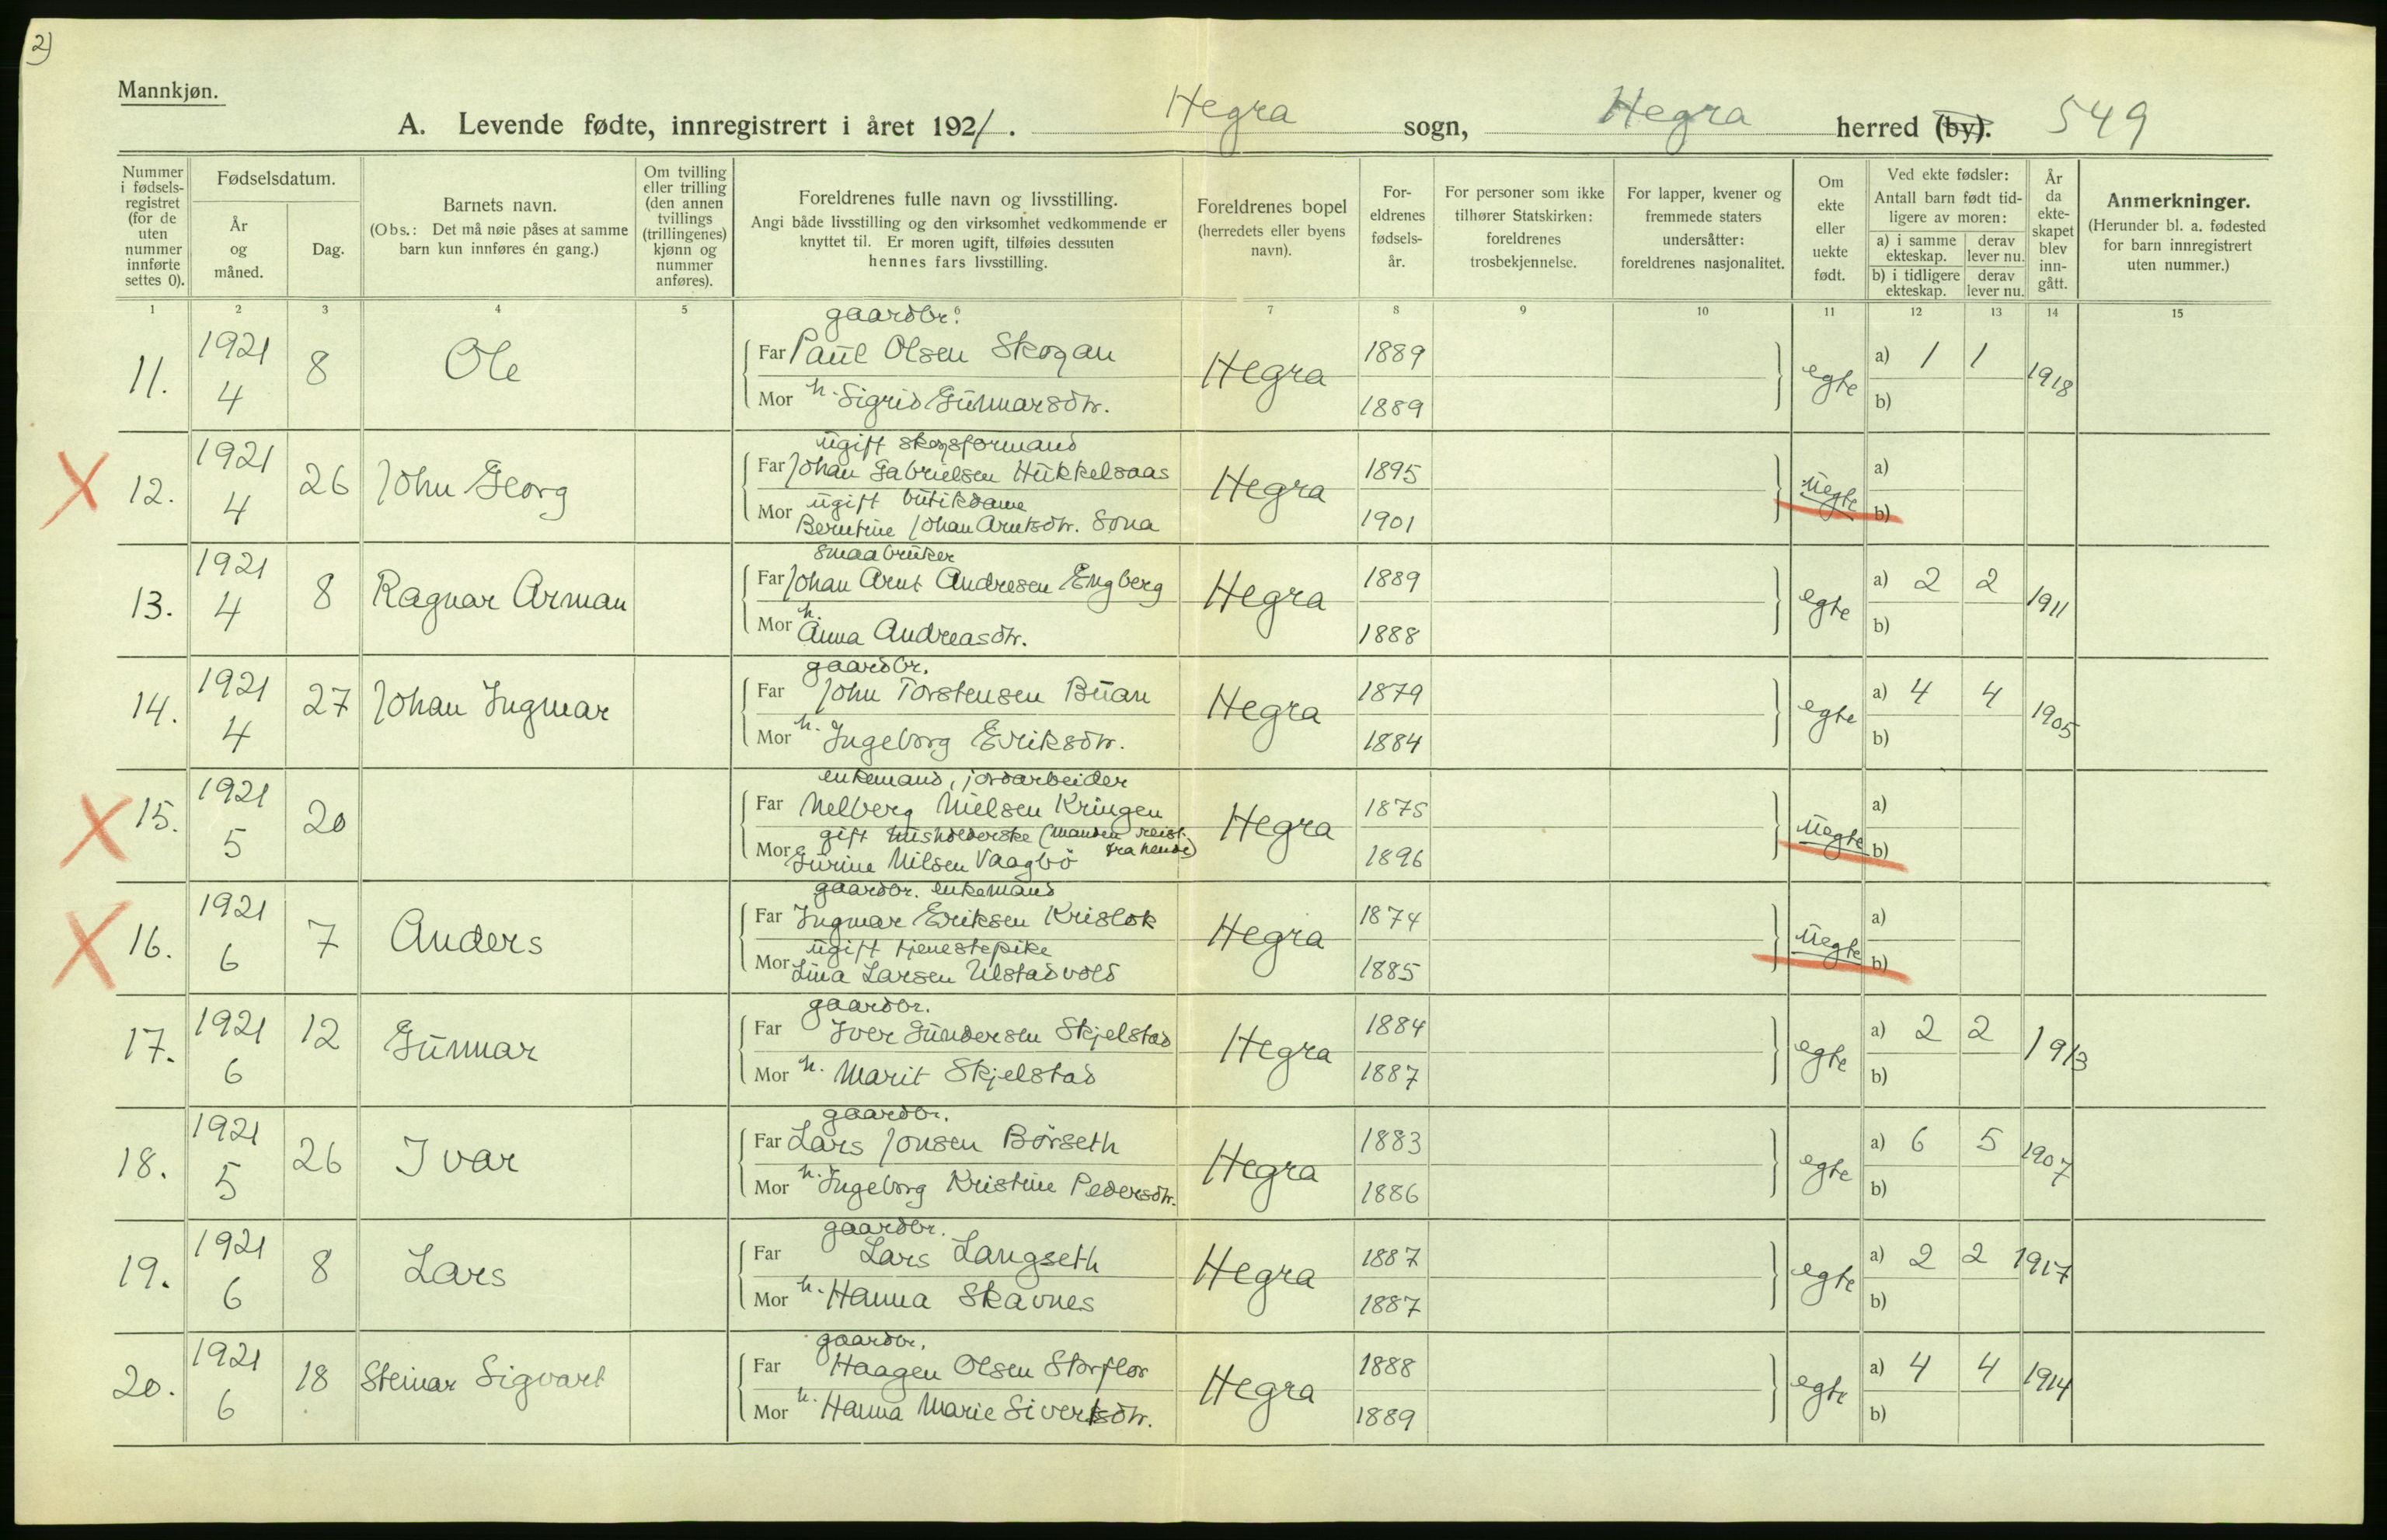 2)
Mannkjøn.
A. Levende fødte, innregistrert i året 1921. Hegra sogn, Hegra herred (by). 549
Nummer i fødsels-registret (for de uten nummer innførte settes 0).
Fødselsdatum.
År og måned.
Dag.
Barnets navn.
(Obs.: Det må nøie påses at samme barn kun innføres én gang.)
Om tvilling eller trilling (den annen tvillings (trillingenes) kjønn og nummer anføres).
Foreldrenes fulle navn og livsstilling.
Angi både livsstilling og den virksomhet vedkommende er knyttet til. Er moren ugift, tilføies dessuten hennes fars livsstilling.
Foreldrenes bopel (herredets eller byens navn).
For-eldrenes fødsels-år.
For personer som ikke tilhører Statskirken: foreldrenes trosbekjennelse.
For lapper, kvener og fremmede staters undersåtter: foreldrenes nasjonalitet.
Om ekte eller uekte født.
Ved ekte fødsler:
Antall barn født tid-ligere av moren:
a) i samme ekteskap. derav lever nu.
b) i tidligere ekteskap. derav lever nu.
År da ekte-skapet blev inn-gått.
Anmerkninger.
(Herunder bl. a. fødested for barn innregistrert uten nummer.)
1 2 3 4 5 6 7 8 9 10 11 12 13 14 15
gaardbr.
11. 1921 4 8 Ole Far Paul Olsen Skogan Hegra 1889 egte a) 1 1 1918
Mor h. Sigrid Gunnarsdtr. 1889 b)
ugift skogsformand
12. 1921 4 26 John Georg Far Johan Gabrielsen Hukkelsaas Hegra 1895 uegte a)
ugift butikdame
Mor Berntine Johan Arntsdtr. Sona 1901 b)
smaabruker
13. 1921 4 8 Ragnar Arman Far Johan Arnt Andresen Engberg Hegra 1889 egte a) 2 2 1911
Mor h. Anna Andreasdtr. 1888 b)
gaardbr.
14. 1921 4 27 Johan Ingmar Far John Torstensen Buan Hegra 1879 egte a) 4 4 1905
Mor h. Ingeborg Eriksdtr. 1884 b)
enkemand, jordarbeider
15. 1921 5 20 Far Melberg Nielsen Kringen Hegra 1875 uegte a)
gift husholderske (manden reist fra hende)
Mor Gurine Nilsen Vaagbö 1896 b)
gaardbr. enkemand
16. 1921 6 7 Anders Far Ingmar Eriksen Krislok Hegra 1874 uegte a)
ugift tjenestepike
Mor Lina Larsen Ulstadvold 1885 b)
gaardbr.
17. 1921 6 12 Gunnar Far Iver Gundersen Skjelstad Hegra 1884 egte a) 2 2 1913
Mor h. Marit Skjelstad 1887 b)
gaardbr.
18. 1921 5 26 Ivar Far Lars Jonsen Börseth Hegra 1883 egte a) 6 5 1907
Mor h. Ingeborg Kristine Pedersdtr. 1886 b)
gaardbr.
19. 1921 6 8 Lars Far Lars Langseth Hegra 1887 egte a) 2 2 1917
Mor h. Hanna Skavnes 1887 b)
gaardbr.
20. 1921 6 18 Steinar Sigvart Far Haagen Olsen Storflor Hegra 1888 egte a) 4 4 1914
Mor h. Hanna Marie Sivertsdtr. 1889 b)